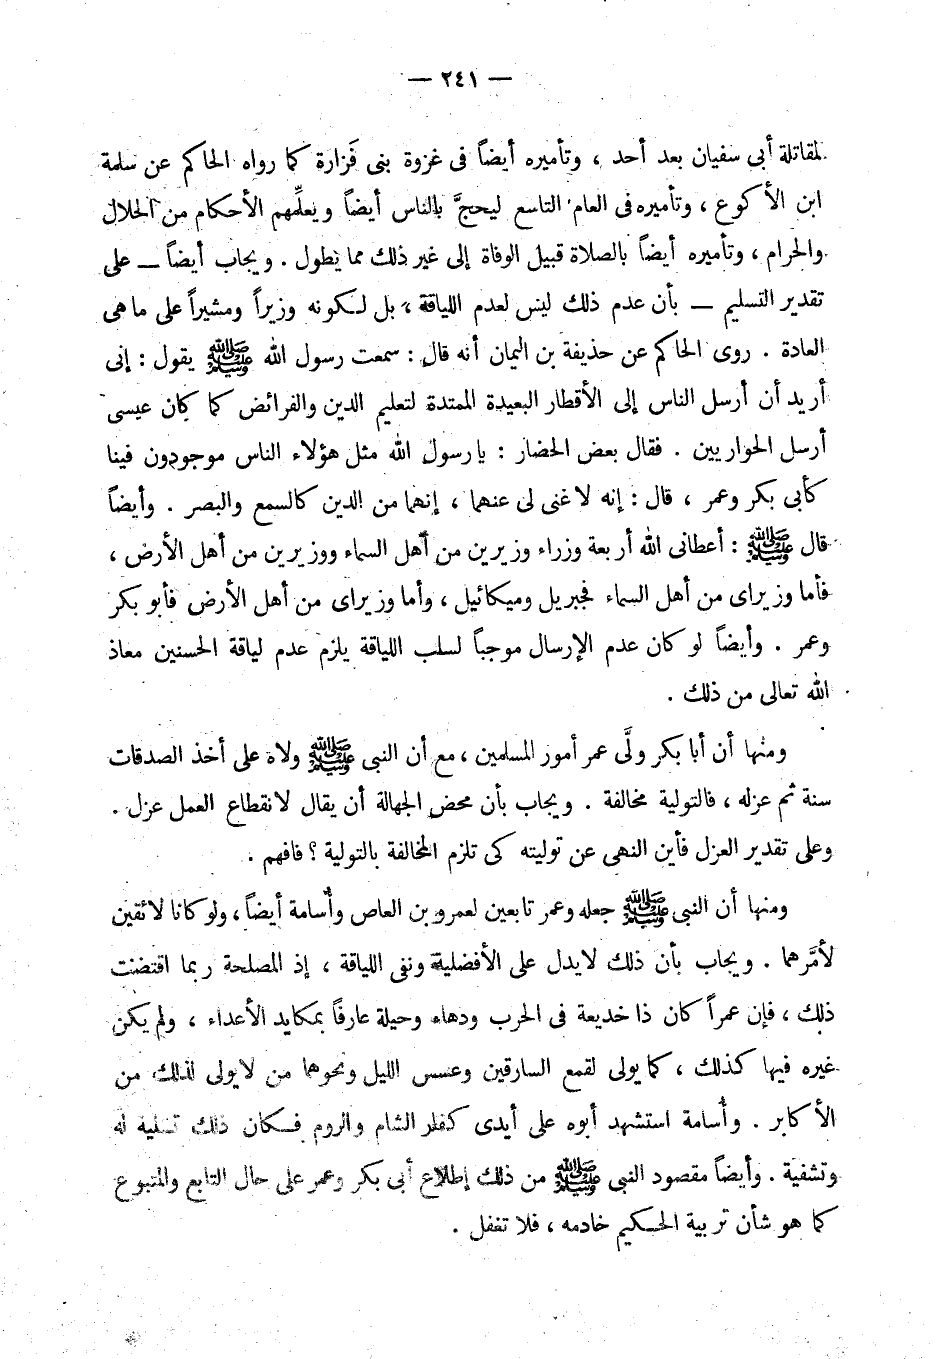 — ٢٤١ —
لمقاتلة أبى سفيان بعد أحد ، وتأميره أيضاً فى غزوة بنى فَزارة كما رواه الحاكم عن سلمة
ابن الأكوع ، وتأميره فى العام التاسع ليحجَّ بالناس أيضاً ويعلِّمهم الأحكام من الحلال
والحرام ، وتأميره أيضاً بالصلاة قبيل الوفاة إلى غير ذلك مما يطول . ويجاب أيضاً — على
تقدير التسليم — بأن عدم ذلك ليس لعدم اللياقة ، بل لكونه وزيراً ومشيراً على ما هى
العادة . روى الحاكم عن حذيفة بن اليمان أنه قال : سمعت رسول الله ﷺ يقول : إنى
أريد أن أرسل الناس إلى الأقطار البعيدة الممتدة لتعليم الدين والفرائض كما كان عيسى
أرسل الحواريين . فقال بعض الحضار : يا رسول الله مثل هؤلاء الناس موجودون فينا
كأبى بكر وعمر ، قال : إنه لا غنى لى عنهما ، إنهما من الدين كالسمع والبصر . وأيضاً
قال ﷺ : أعطانى الله أربعة وزراء وزيرين من أهل السماء ووزيرين من أهل الأرض ،
فأما وزيراى من أهل السماء فجبريل وميكائيل ، وأما وزيراى من أهل الأرض فأبو بكر
وعمر . وأيضاً لو كان عدم الإرسال موجباً لسلب اللياقة يلزم عدم لياقة الحسنين معاذ
الله تعالى من ذلك .
ومنها أن أبا بكر ولَّى عمر أمور المسلمين ، مع أن النبى ﷺ ولاه على أخذ الصدقات
سنة ثم عزله ، فالتولية مخالفة . ويجاب بأن محض الجهالة أن يقال لانقطاع العمل عزل .
وعلى تقدير العزل فأين النهى عن توليته كى تلزم المخالفة بالتولية ؟ فافهم .
ومنها أن النبى ﷺ جعله وعمر تابعين لعمرو بن العاص وأُسامة أيضاً ، ولو كانا لائقين
لأمَّرهما . ويجاب بأن ذلك لا يدل على الأفضلية ونفى اللياقة ، إذ المصلحة ربما اقتضت
ذلك ، فإن عمراً كان ذا خديعة فى الحرب ودهاء وحيلة عارفاً بمكايد الأعداء ، ولم يكن
غيره فيها كذلك ، كما يولى لقمع السارقين وعسس الليل ونحوهما من لا يولى لذلك من
الأكابر . وأُسامة استشهد أبوه على أيدى كفار الشام والروم فكان ذلك تسلية له
وتشفية . وأيضاً مقصود النبى ﷺ من ذلك إطلاع أبى بكر وعمر على حال التابع والمتبوع
كما هو شأن تربية الحكيم خادمه ، فلا تغفل .